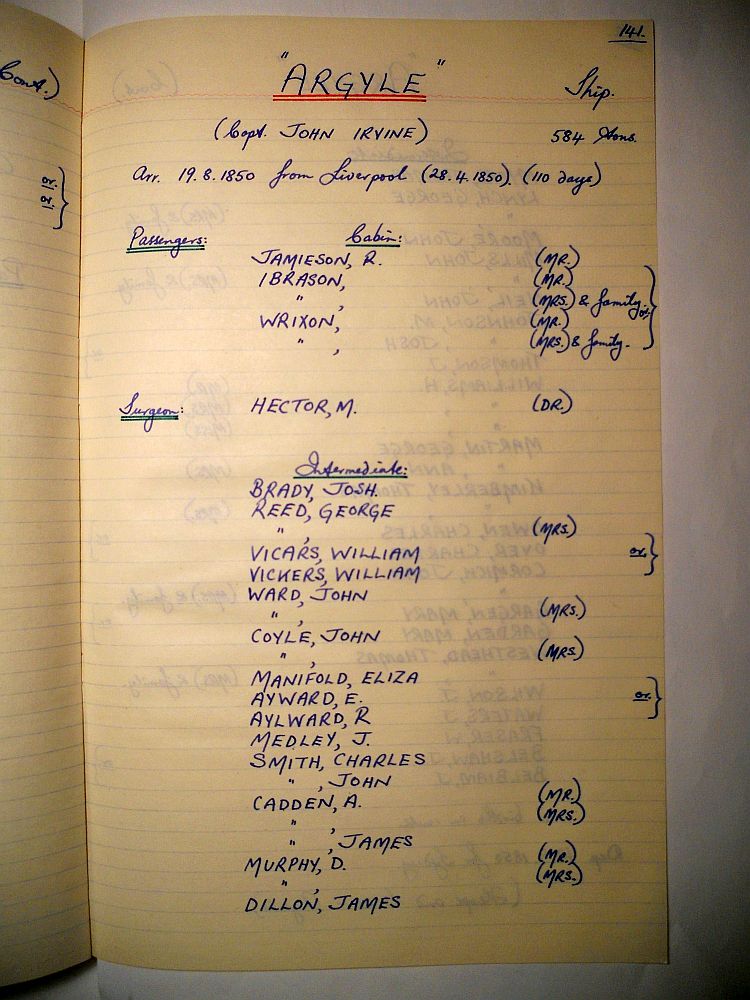 141.
Cont.)
or.
or.
"ARGYLE"
Ship.
(Capt. JOHN IRVINE)
584 Tons.
Arr. 19.8.1850 from Liverpool (28.4.1850). (110 days)
Passengers: Cabin:
JAMIESON, R. (MR.)
IBRASON, (MR.)
" , (MRS.) & family. or.
WRIXON, (MR.)
" , (MRS.) & family.
Surgeon: HECTOR, M. (DR.)
Intermediate:
BRADY, JOSH.
REED, GEORGE
" , (MRS.)
VICARS, WILLIAM or.
VICKERS, WILLIAM
WARD, JOHN
" , (MRS.)
COYLE, JOHN
" , (MRS.)
MANIFOLD, ELIZA
AYWARD, E. or.
AYLWARD, R
MEDLEY, J.
SMITH, CHARLES
" , JOHN
CADDEN, A. (MR.)
" , (MRS.)
" , JAMES
MURPHY, D. (MR.)
" , (MRS.)
DILLON, JAMES